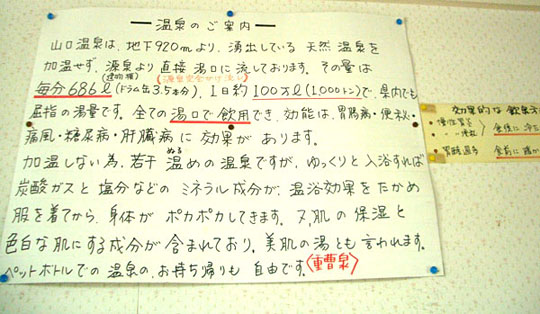 温泉のご案内
山口温泉は、地下920mより、湧出している 天然温泉を
加温せず、源泉より直接湯口に流しております。その量は
(建物横) (源泉完全かけ流し)
毎分686ℓ(ドラム缶3.5本分)、1日約100万ℓ(1,000トン)で、県内でも
屈指の湯量です。全ての湯口で飲用でき、効能は、胃腸病・便秘・
痛風・糖尿病・肝臓病に効果があります。
加温しない為、若干 温め(ぬる)の温泉ですが、ゆっくりと入浴すれば
炭酸ガスと塩分などのミネラル成分が、温浴効果をたかめ
服を着てから、身体が ポカポカしてきます。又、肌の保湿と
色白な肌にする成分が含まれており、美肌の湯とも言われます。
ペットボトルでの温泉の、お持ち帰りも 自由です。〈重曹泉〉
効果的な飲泉
・慢性胃
・〃 便秘
食後に
・胃酸過多
食前に